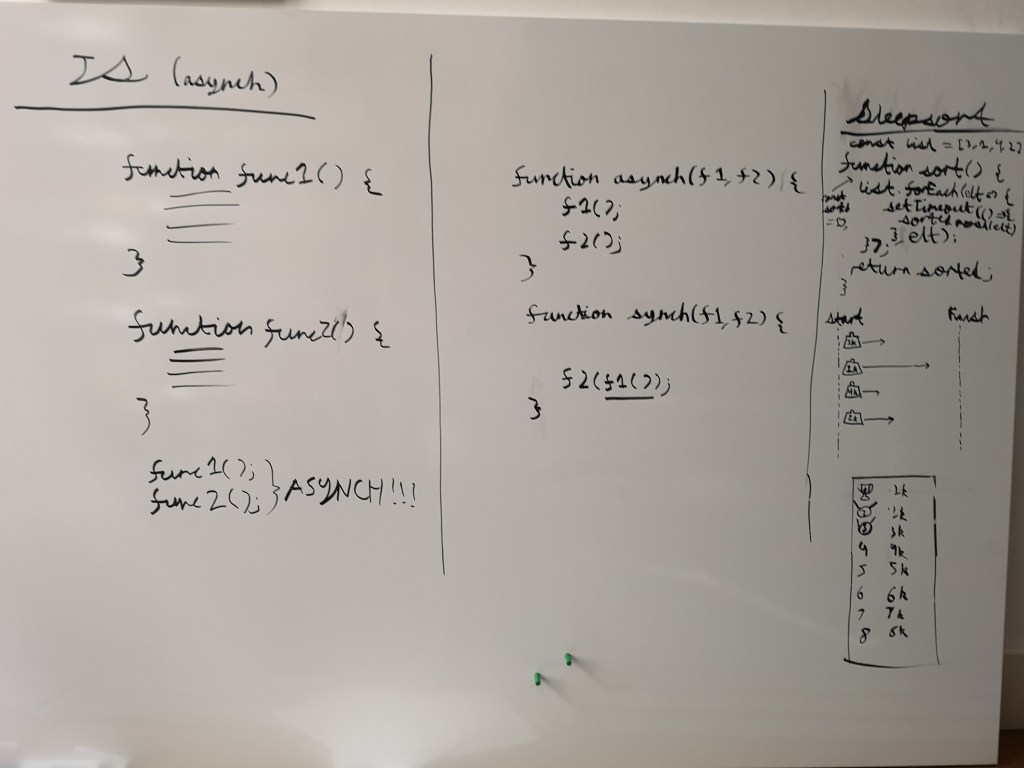 JS (asynch)
function func1() {
}
function func2() {
}
func1();
func2(); } ASYNCH!!!
function asynch(f1, f2) {
f1();
f2();
}
function synch(f1, f2) {
f2(f1());
}
Sleepsort
const list = [3,1,4,2]
function sort() {
list.forEach(elt => {
setTimeout(() => {
sorted.push(elt)
} elt);
});
return sorted;
}
start Finish
4 4k
5 5k
6 6k
7 7k
8 8k